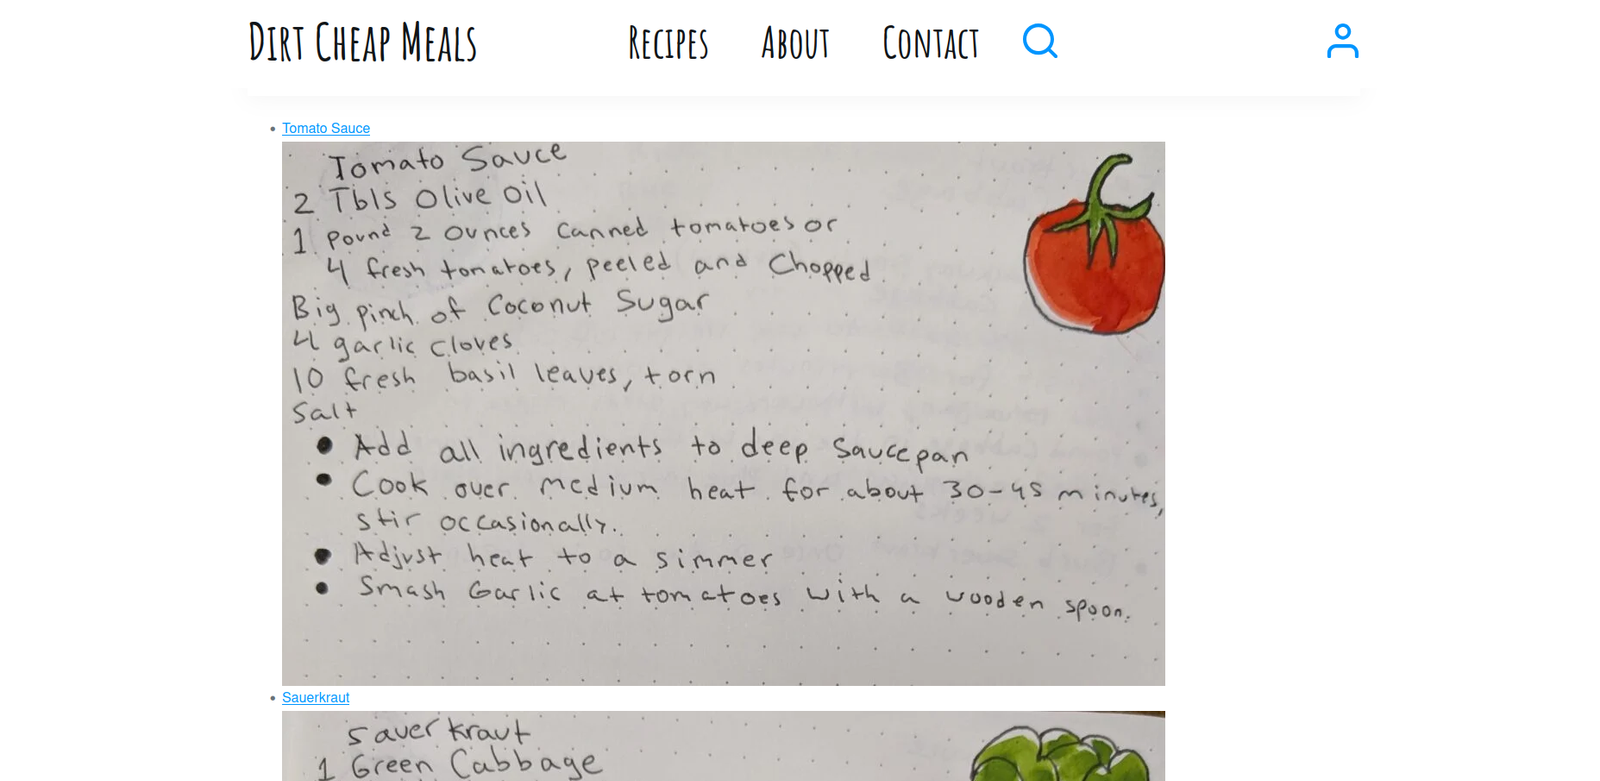 Dirt Cheap Meals Recipes About Contact
Tomato Sauce
Tomato Sauce
2 Tbls Olive Oil
1 Pound 2 ounces Canned tomatoes or
4 fresh tomatoes, peeled and Chopped
Big pinch of Coconut Sugar
4 garlic cloves
10 fresh basil leaves, torn
Salt
• Add all ingredients to deep Saucepan
• Cook over medium heat for about 30-45 minutes,
stir occasionally.
• Adjust heat to a simmer
• Smash Garlic at tomatoes with a wooden spoon.
Sauerkraut
Sauerkraut
1 Green Cabbage